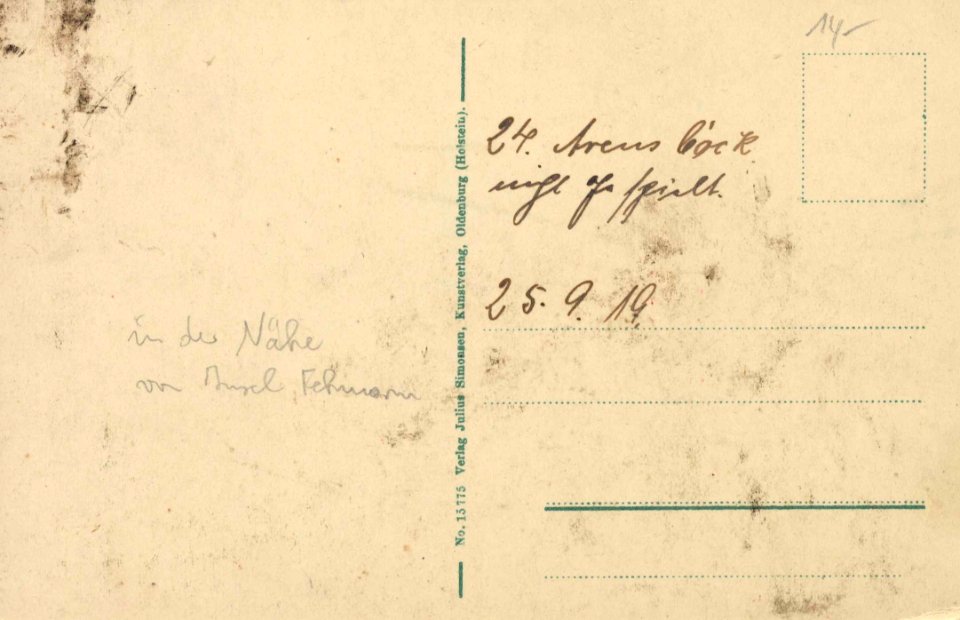 14,-
24. Arensböck
nicht gespielt.
25. 9. 19.
in der Nähe
von Insel Fehmarn
No. 15775 Verlag Julius Simonsen, Kunstverlag, Oldenburg (Holstein).